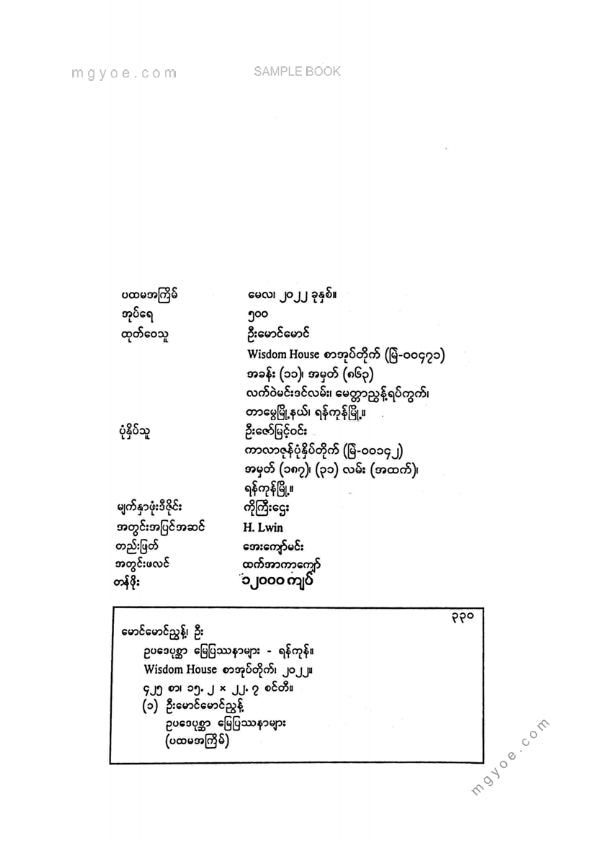 mgyoe.com SAMPLE BOOK
ပထမအကြိမ် မေလ၊ ၂၀၂၂ ခုနှစ်။
အုပ်ရေ ၅၀၀
ထုတ်ဝေသူ ဦးမောင်မောင်
Wisdom House စာအုပ်တိုက် (မြဲ-၀၀၄၇၁)
အခန်း (၁၁)၊ အမှတ် (၈၆၃)
လက်ဝဲမင်းဒင်လမ်း၊ မေတ္တာညွန့်ရပ်ကွက်၊
တာမွေမြို့နယ်၊ ရန်ကုန်မြို့။
ပုံနှိပ်သူ ဦးဇော်မြင့်ဝင်း
ကာလာဇုန်ပုံနှိပ်တိုက် (မြဲ-၀၀၁၄၂)
အမှတ် (၁၈၇)၊ (၃၁) လမ်း (အထက်)၊
ရန်ကုန်မြို့။
မျက်နှာဖုံးဒီဇိုင်း ကိုကြီးငှေး
အတွင်းအပြင်အဆင် H. Lwin
တည်းဖြတ် အေးကျော်မင်း
အတွင်းဖလင် ထက်အာကာကျော်
တန်ဖိုး ၁၂၀၀၀ ကျပ်
၃၃၀
မောင်မောင်ညွန့်၊ ဦး
ဥပဒေပုစ္ဆာ မြေပြဿနာများ - ရန်ကုန်။
Wisdom House စာအုပ်တိုက်၊ ၂၀၂၂။
၄၂၅ စာ၊ ၁၅.၂ × ၂၂.၇ စင်တီ။
(၁) ဦးမောင်မောင်ညွန့်
ဥပဒေပုစ္ဆာ မြေပြဿနာများ
(ပထမအကြိမ်)
mgyoe.com